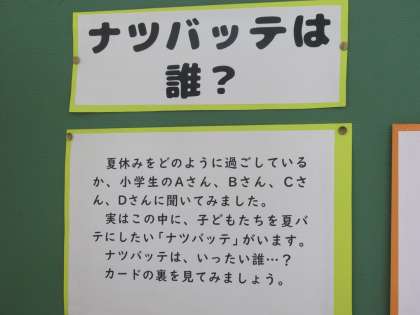 ナツバッテは
誰？
夏休みをどのように過ごしている
か、小学生のAさん、Bさん、Cさ
ん、Dさんに聞いてみました。
実はこの中に、子どもたちを夏バ
テにしたい「ナツバッテ」がいます。
ナツバッテは、いったい誰…？
カードの裏を見てみましょう。